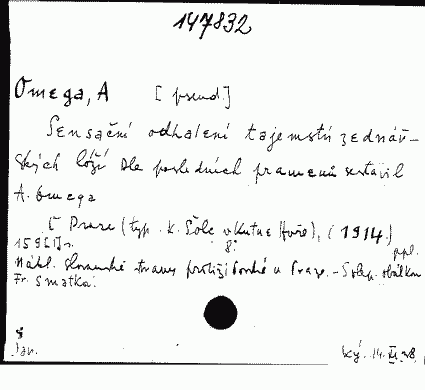 147832
Omega, A [pseud.]
Sensační odhalení tajemství zednář-
ských lóží dle posledních pramenů sestavil
A. Omega
V Praze (typ. K. Šolc v Kutné Hoře), (1914.)
159 [I] s. 8°. ppl.
Nákl. Slovanské strany protižidovské v Praze. - S olep. obálkou
Fr. Smatka.
Jan. 14. XI